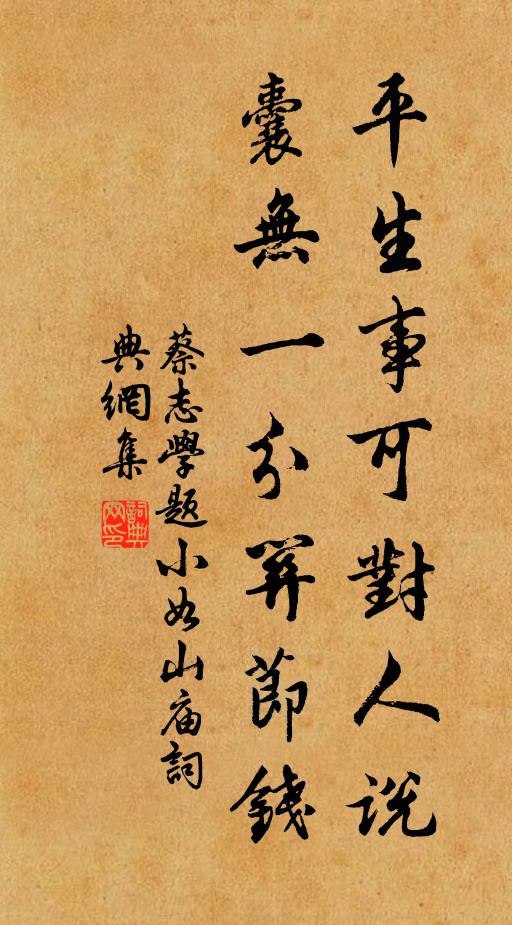 平生事可對人說
囊無一分關節錢
蔡志學題小如山庙詞
典網集
詞典
网印